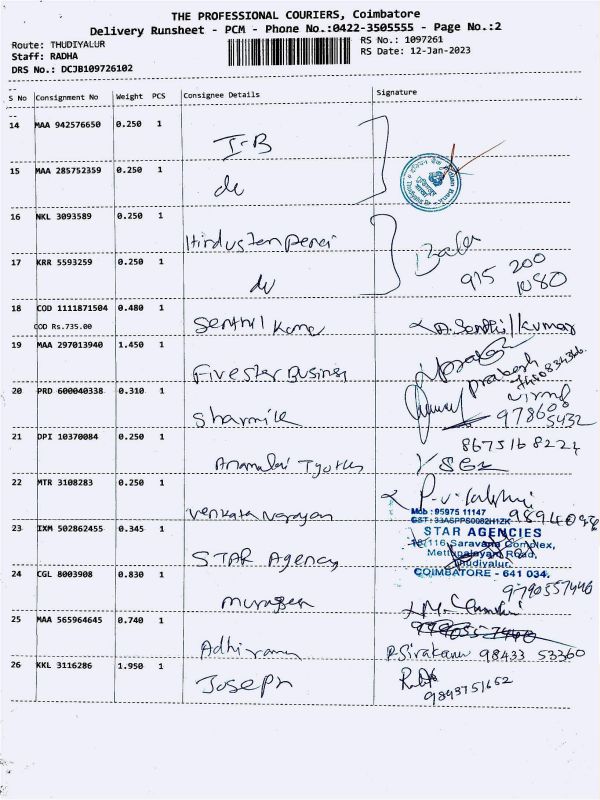 THE PROFESSIONAL COURIERS, Coimbatore
Delivery Runsheet - PCM - Phone No.:0422-3505555 - Page No.:2
Route: THUDIYALUR
RS No.: 1097261
Staff: RADHA
RS Date: 12-Jan-2023
DRS No.: DCJB109726102
S No Consignment No Weight PCS Consignee Details Signature
14 MAA 942576650 0.250 1 I-B
15 MAA 285752359 0.250 1 do
16 NKL 3093589 0.250 1 Hindustan
17 KRR 5593259 0.250 1 do
Bala
915 200
1080
18 COD 1111871504 0.480 1 Senthil Kumar A. Senthil kumar
COD Rs.735.00
19 MAA 297013940 1.450 1 Fivestar Business
prakash
20 PRD 600040338 0.310 1 Sharmila
97860
5432
21 DPI 10370084 0.250 1
8675168224
22 MTR 3108283 0.250 1 Venkata Narayan
23 IXM 502862455 0.345 1 STAR Agency
Mob : 95975 11147
GST : 33ASPPS0082H1ZK
STAR AGENCIES
Saravana Complex,
Mettupalayam Road,
Thudiyalur,
COIMBATORE - 641 034.
24 CGL 8003908 0.830 1 Murugan
9790557446
25 MAA 565964645 0.740 1
98433 53360
26 KKL 3116286 1.950 1 Joseph
9843751652